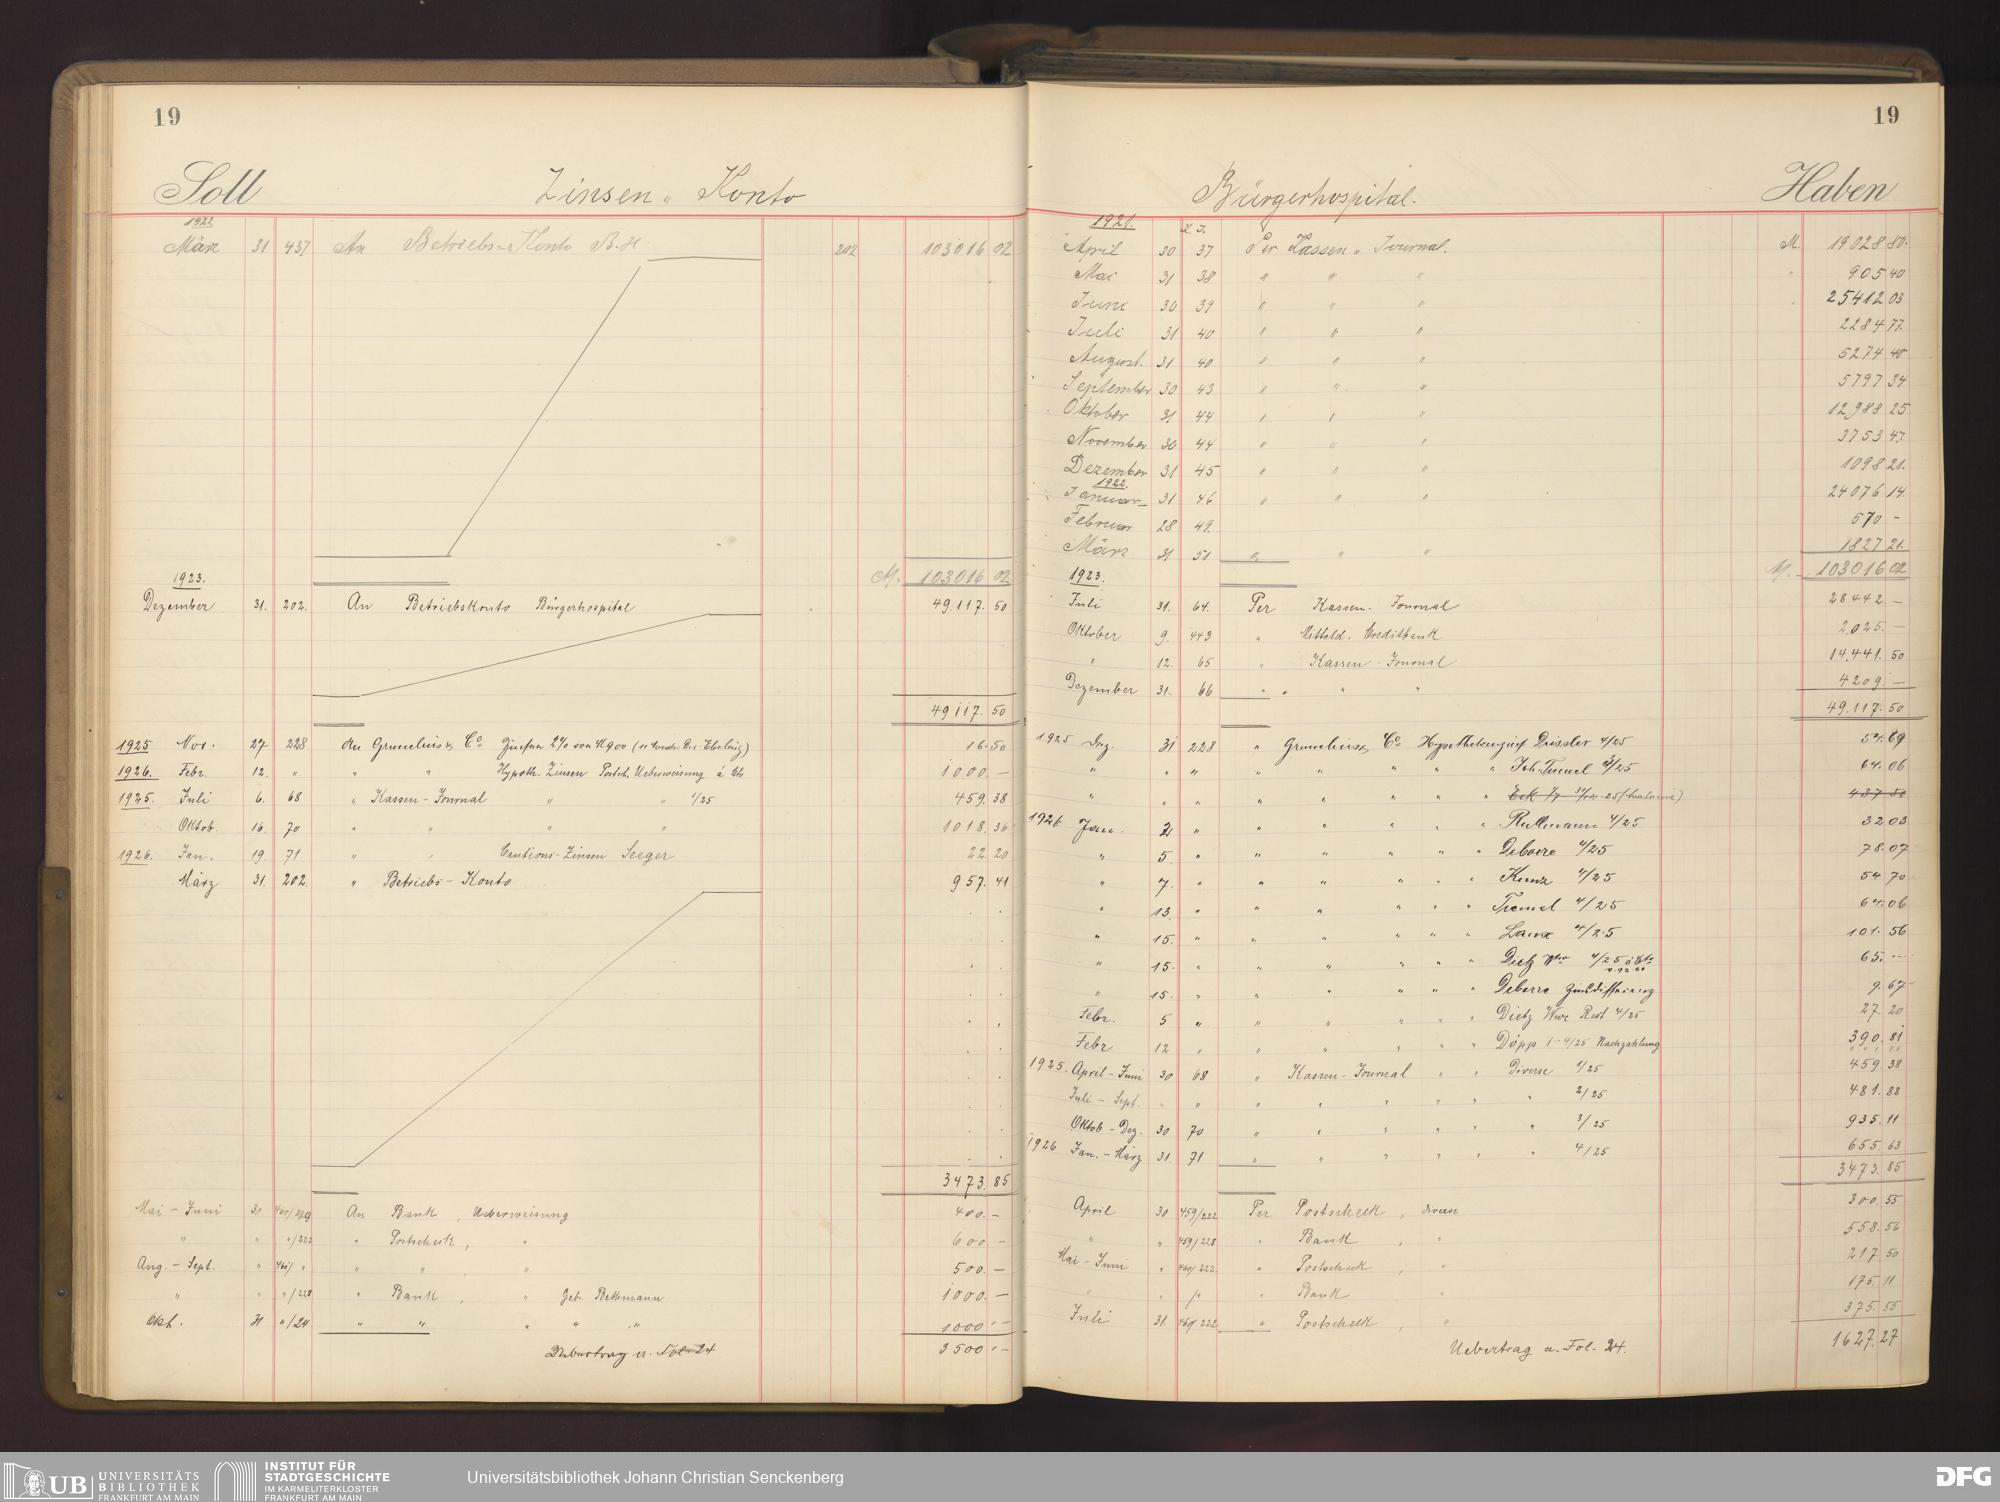 19
Soll Zinsen-Konto
1922
März 31 437 An Betriebs-Konto B.H 202 103016 02
M. 103016 02
1923.
Dezember 31. 202. An Betriebskonto Bürgerhospital 49.117. 50
49117. 50
1925 Nov. 27 228 An Grunelius & Co Zinsen 2% von M 900 16.50
1926. Febr. 12. " " " Hypoth. Zinsen Postsch. Ueberweisung 1000.—
1925. Juli 6. 68 " Kassen-Journal " " 1/25 459. 38
Oktob. 16. 70 " " " " 1018. 36
1926. Jan. 19. 71 " " Cautions-Zinsen Seeger 22. 20
März 31. 202. " Betriebs-Konto 957. 41
3473. 85
Mai – Juni 30 460/229 An Bank, Ueberweisung 400.—
" " "/222 " Postscheck, " 600.—
Aug. – Sept. " 461/ " " " " 500.—
" " "/228 " Bank, " Geb. Bethmann 1000.—
Okt. 31 "/24 " " " " " 1000.—
Uebertrag a. Fol. 24 3500.—
19
Bürgerhospital. Haben
1921. K. J.
April 30 37 Per Kassen-Journal. M. 19028 80.
Mai 31 38 " " " " 905 40
Juni 30 39 " " " 25412 03
Juli 31 40 " " " 2284 77.
August. 31 40 " " " 5274 40
September 30 43 " " " 5797 34
Oktober 31 44 " " " 12988 25
November 30 44 " " " 3753 47.
Dezember 31 45 " " " 1098 21.
1922.
Januar 31 46 " " " 24076 14.
Februar 28 49. 570 –
März 31 51 " " " 1827 21.
M. 103016 02
1923.
Juli 31. 64. Per Kassen-Journal 28442.—
Oktober 9. 443 " Mitteld. Creditbank 2.025.—
" 12. 65 " Kassen-Journal 14.441. 50
Dezember 31. 66 " " " " 4209.—
49.117. 50
1925 Dez. 31 228 " Grunelius & Co Hypothekenzins Drissler 4/25 54. 69
" " " " " " " " Joh. Tremel 3/25 64. 06
" " " " " " " " Eck 437 50
1926 Jan. 2 " " " " " " Rullmann 4/25 32 03
" 5. " " " " " " Debarre 4/25 78. 07
" 7. " " " " " " Kunz 4/25 54 70
" 13. " " " " " " Tremel 4/25 64. 06
" 15. " " " " " " Lanx 4/25 101. 56
" 15. " " " " " " Dietz Wwe 4/25 65. –
" 15. " " " " " " Debarre Zinsdifferenz 9. 67
Febr. 5 " " " " " " Dietz Wwe Rest 4/25 27. 20
Febr 12 " " " " " " Döpp 1–4/25 Nachzahlung 390. 81
1925. April – Juni 30 68 " Kassen-Journal " " Diverse 1/25 459. 38
Juli – Sept. " " " " " " " " 2/25 481. 88
Oktob – Dez. 30 70 " " " " " " 3/25 935. 11
1926 Jan. – März 31. 71 " " " " " " 4/25 655. 63
3473. 85
April 30 459/222 Per Postscheck, diverse 300. 55
" " 459/228 " Bank, " 558. 56
Mai – Juni " 460/222 " Postscheck, " 217. 50
" " /" " Bank " 175. 11
Juli 31. 460/222 " Postscheck, " 375. 55
Uebertrag a. Fol. 24. 1627. 27
UB UNIVERSITÄTS BIBLIOTHEK FRANKFURT AM MAIN
INSTITUT FÜR STADTGESCHICHTE IM KARMELITERKLOSTER FRANKFURT AM MAIN
Universitätsbibliothek Johann Christian Senckenberg
DFG